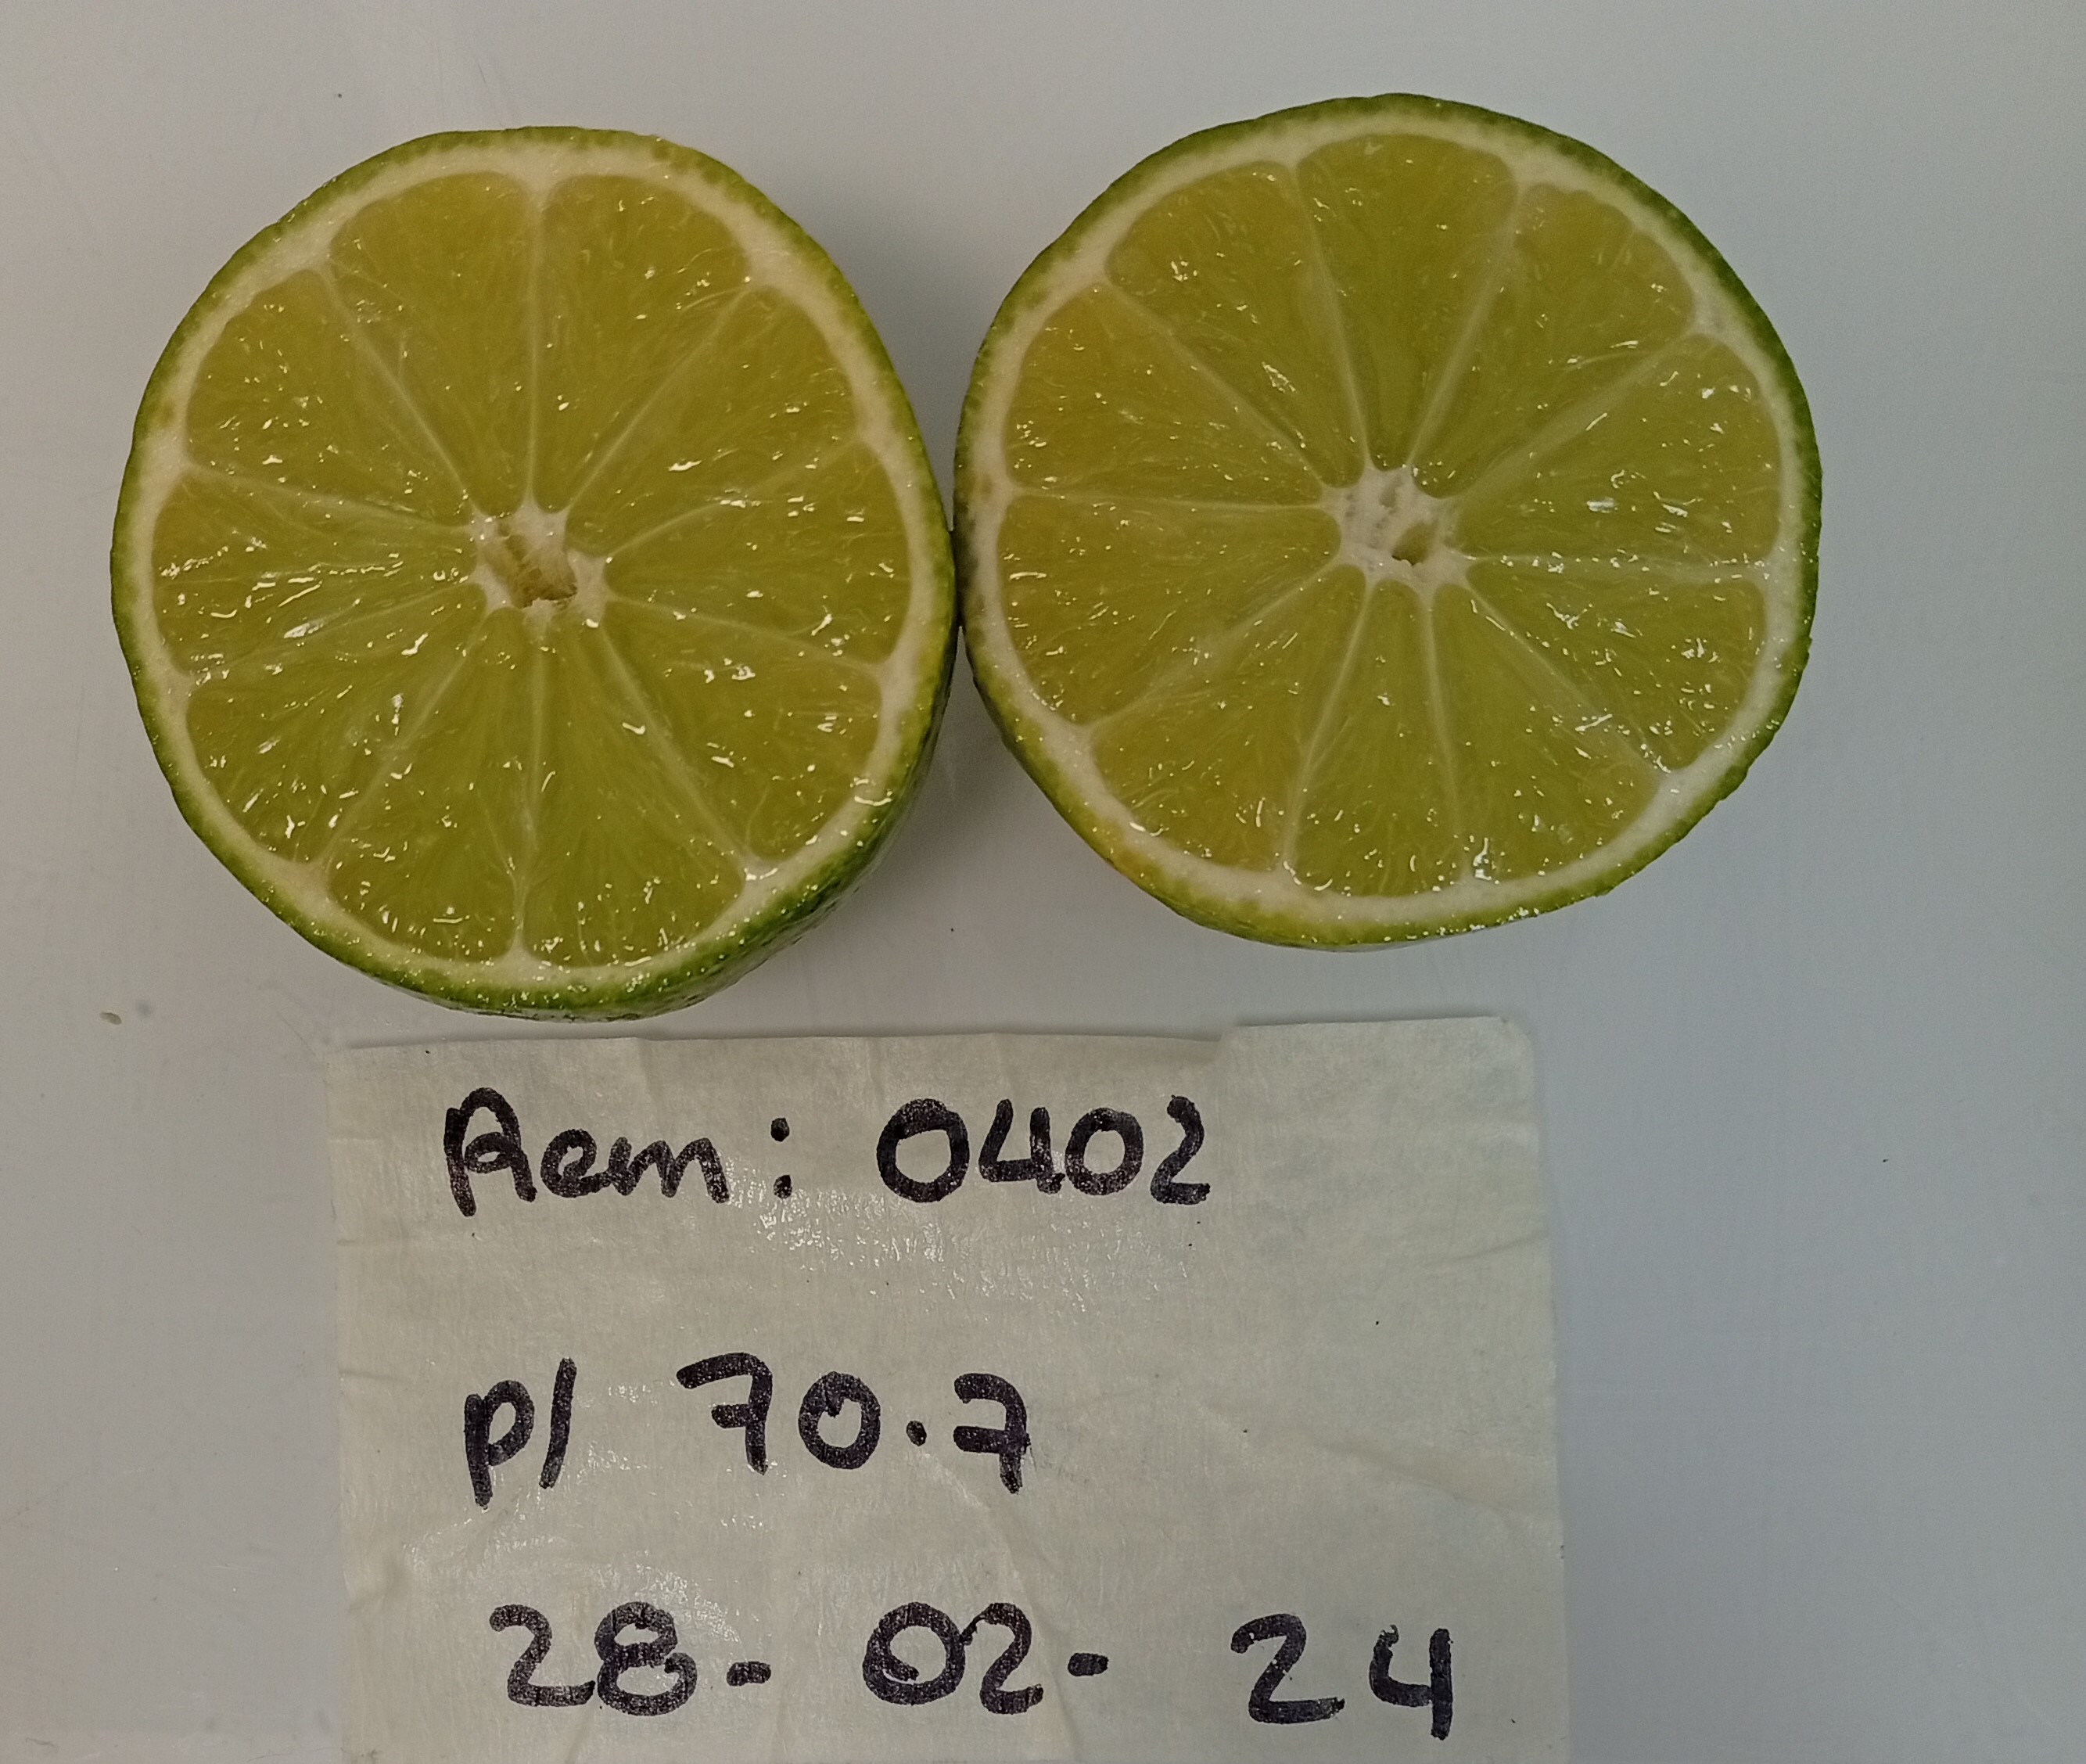 Rem: 0402
p/ 70.7
28- 02- 24